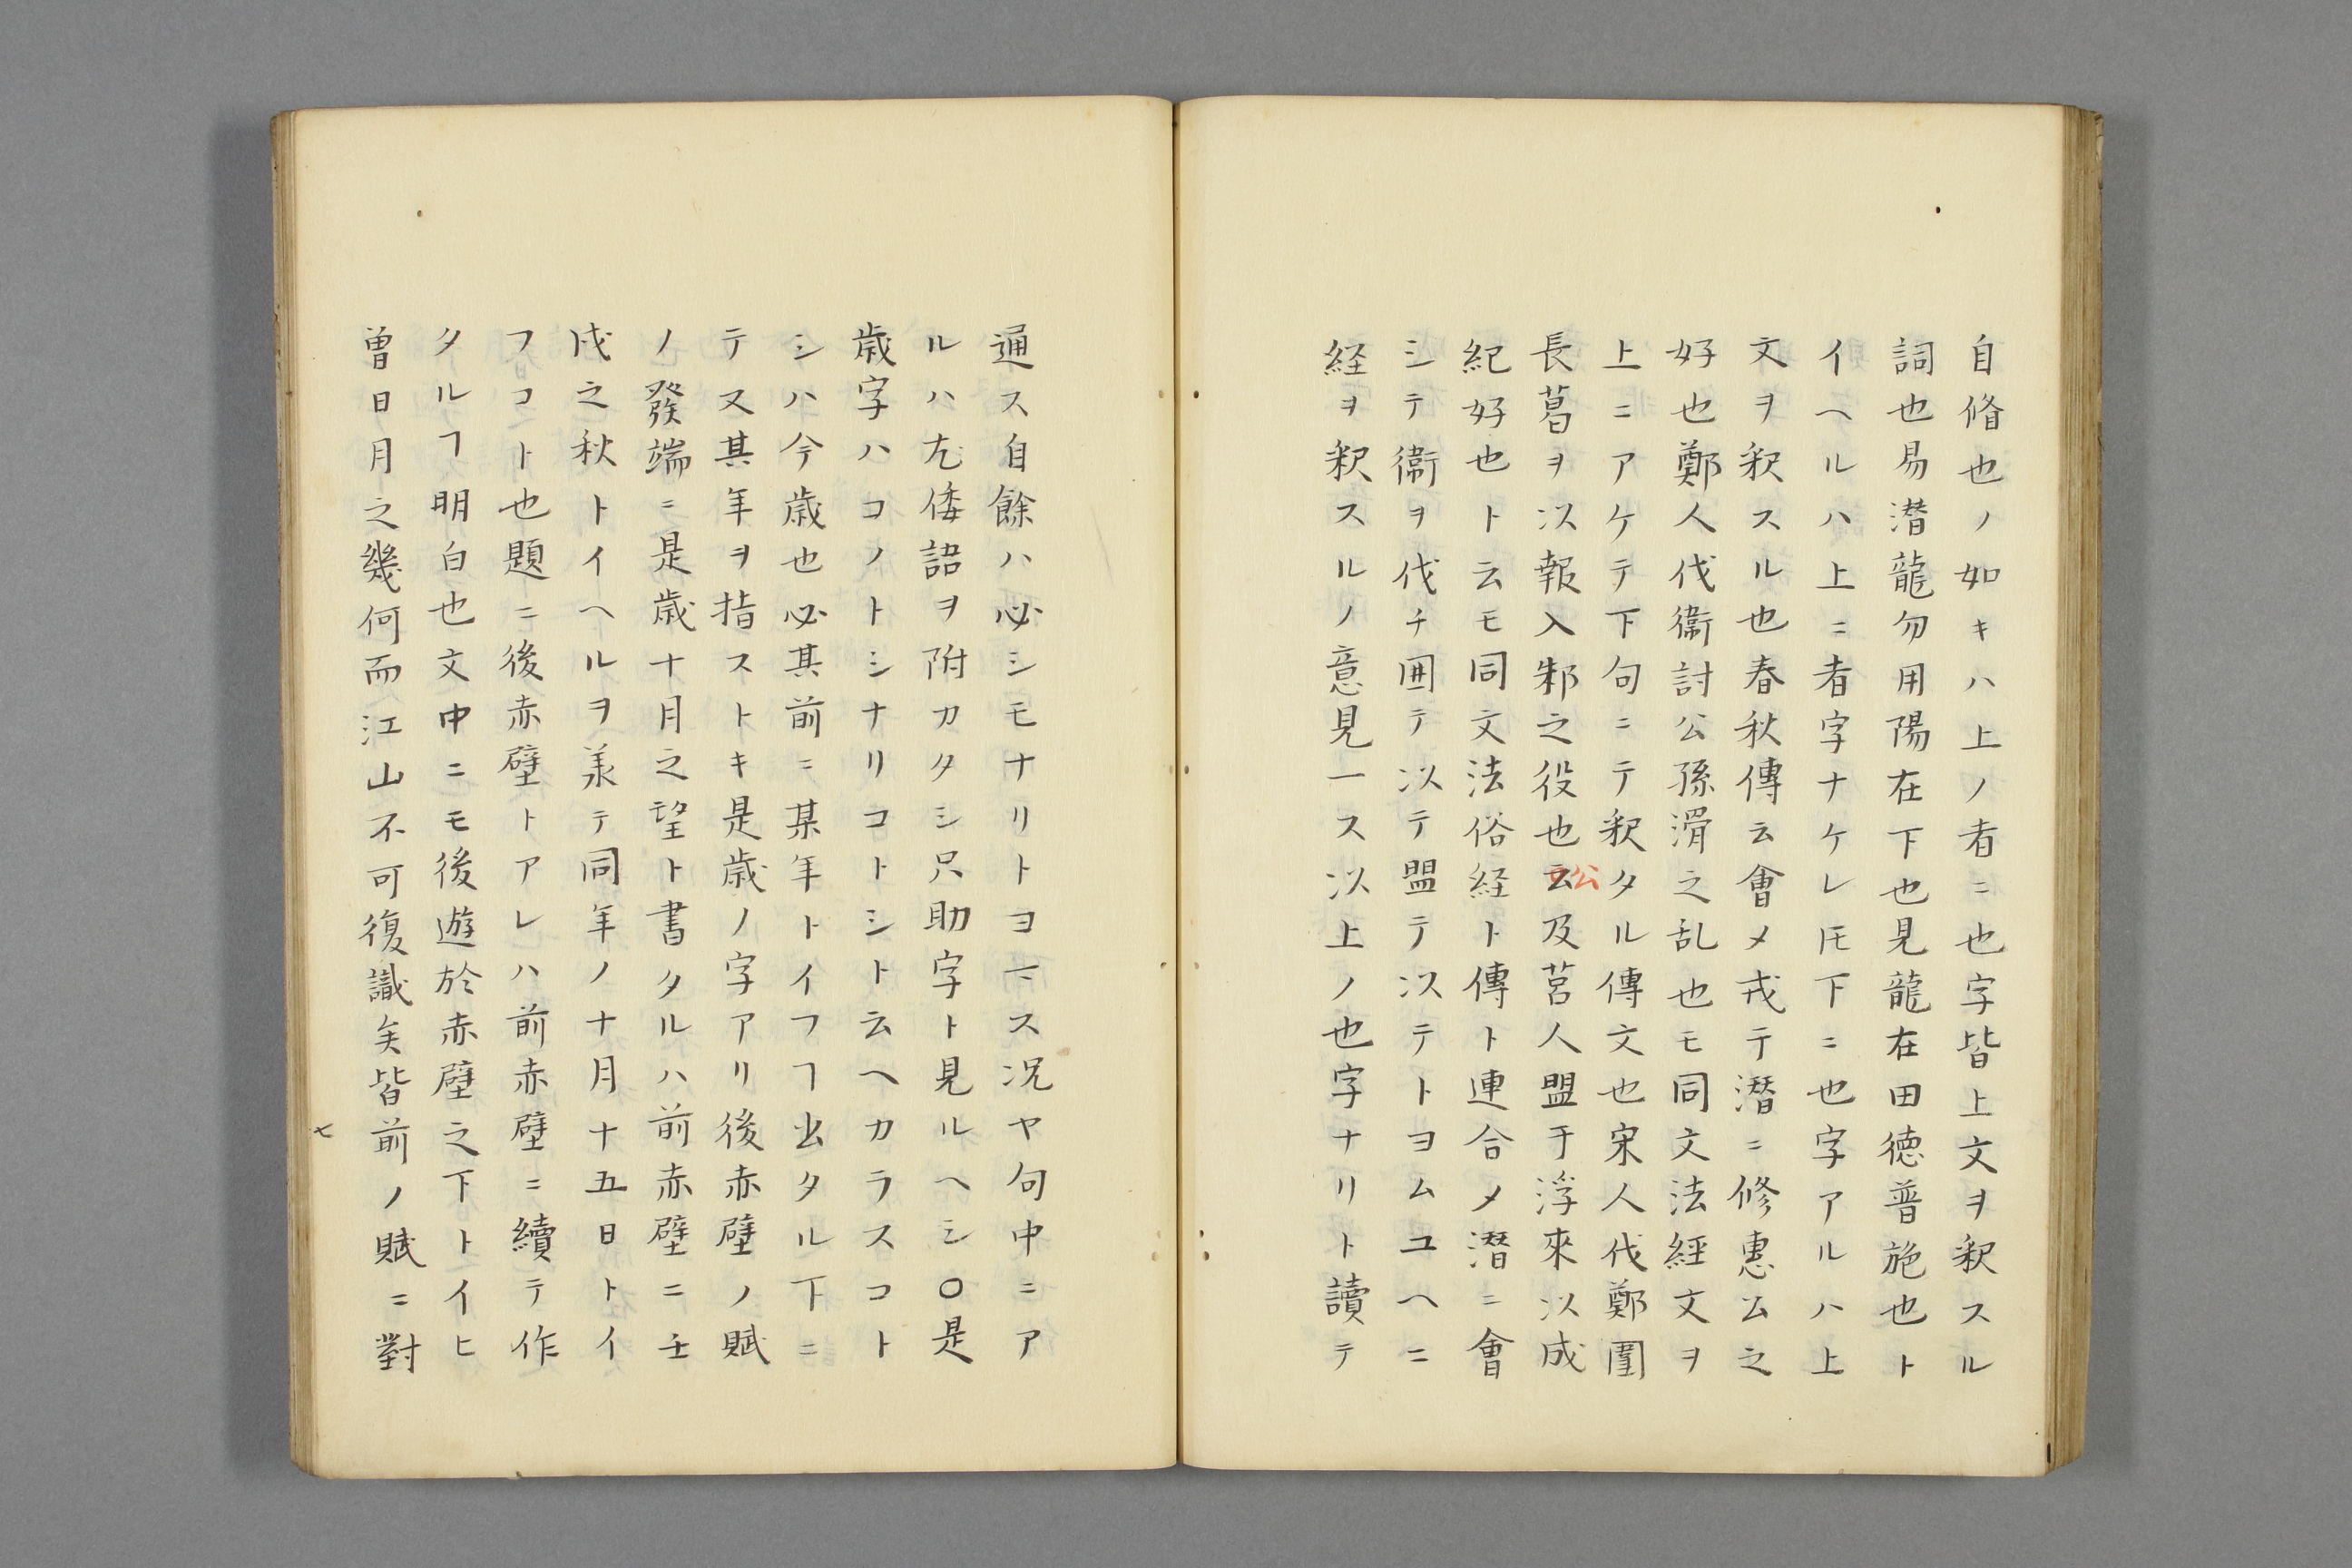 自脩也ノ如キハ上ノ者ニ也字皆上文ヲ釈スル
詞也易潜龍勿用陽在下也見龍在田徳普施也ト
イヘルハ上ニ者字ナケレ𪜈下ニ也字アルハ上
文ヲ釈スル也春秋傳云會メ戎テ潜ニ修惠公之
好也鄭人伐衛討公孫滑之乱也モ同文法經文ヲ
上ニアケテ下句ニテ釈タル傳文也宋人伐鄭圍
長葛ヲ以報入邾之役也公及莒人盟于浮來以成
紀好也ト云モ同文法俗経ト傳ト連合メ潜ニ會
シテ衞ヲ伐チ囲テ以テ盟テ以テトヨムユヘニ
経ヲ釈スルノ意見一ス以上ノ也字ナリト讀テ
通ス自餘ハ必シモナリトヨマス况ヤ句中ニア
ルハ尤倭語ヲ附カタシ只助字ト見ルヘシ○是
歳字ハコノトシナリコトシト云ヘカラスコト
シハ今歳也必其前ニ某年トイフヿ出タル下ニ
テ又其年ヲ指ストキ是歳ノ字アリ後赤壁ノ賦
ノ發端ニ是歳十月之望ト書タルハ前赤壁ニ壬
戌之秋トイヘルヲ羕テ同年ノ十月十五日トイ
フコト也題ニ後赤壁トアレハ前赤壁ニ續テ作
タルヿ明白也文中ニモ後遊於赤壁之下トイヒ
曽日月之幾何而江山不可復識矣皆前ノ賦ニ對
七